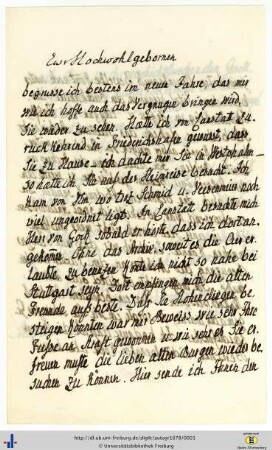 Euer Hochwohlgebornen
begrüsse ich bestens im neuen Jahre, das mir
wie ich hoffe auch das Vergnügen bringen wird,
Sie wieder zu sehen. Hätte ich von Laustat zu-
rückkehrend in Friedrichshafen gewusst, dass
Sie zu Hause – ich dachte mir Sie in Westphalen –
so hätte ich Sie auf der Heimreise besucht. Ich
kam von Ulm wo tot Schmid u. Veesenmeier noch
viel ungeordnet liegt. In besuchte mich
Herr von sobald er hörte, dass ich dort an-
gekommen. Ohne das Archiv, soweit es die Zeit er-
laubte, zu benutzen konnte ich nicht so nahe bei
Stuttgart seyn. Dort empfingen mich die alten
Freunde aufs beste. Dass Sie Hohen be-
steigen konnten war mir Beweiss wie sehr Ihre
Füsse an Kraft gewonnen u. wie sehr es Sie er-
freuen musste die lieben alten Burgen wieder be-
suchen zu können. Hier sende ich Ihnen den
http://dl.ub.uni-freiburg.de/diglit/autogr1078/0001
© Universitätsbibliothek Freiburg